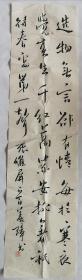 造物無言卻有情每於寒
覺春生千紅萬紫安排
待春雷第一聲 張維屏